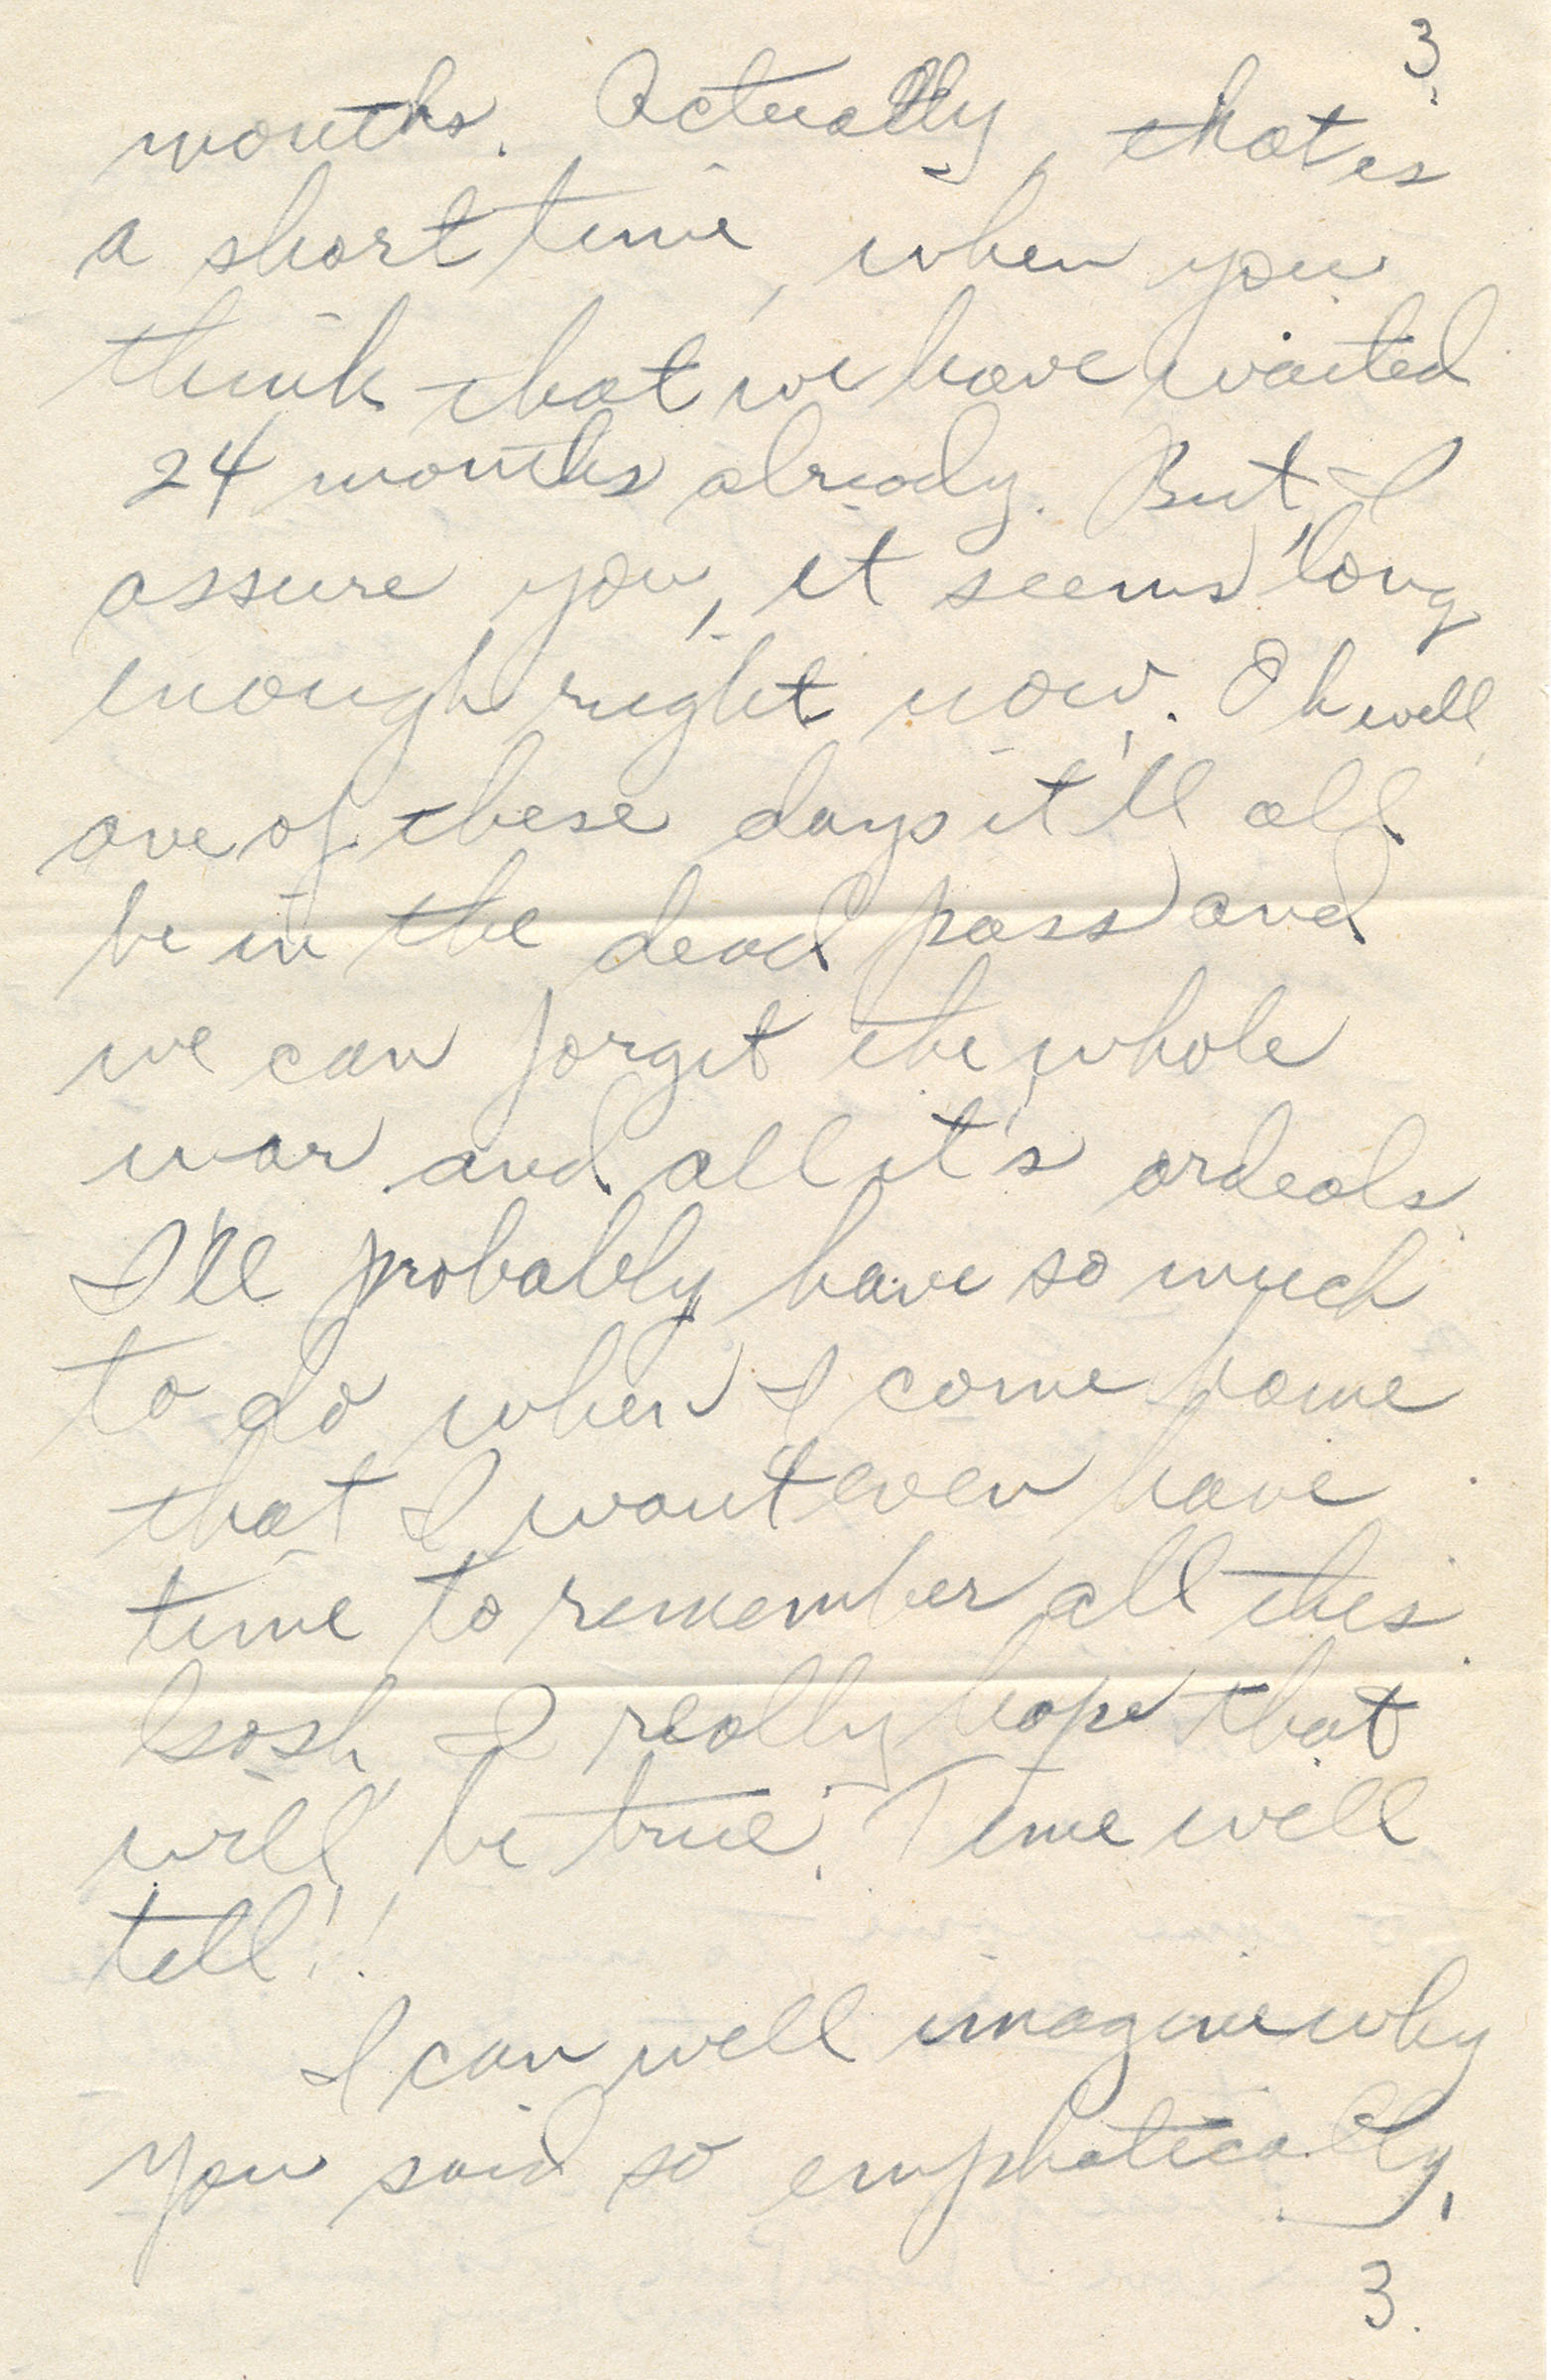 3.
months. Actually, that is
a short time, when you
think that we have waited
24 months already. But, I
assure you, it seems long
enough right now. Oh well,
one of these days it'll all
be in the dead pass and
we can forget the whole
war and all it's ordeals.
I'll probably have so much
to do when I come home
that I wont even have
time to remember all this.
Gosh, I really hope that
will be true. Time will
tell!!
I can well imagine why
you said so emphatically,
3.